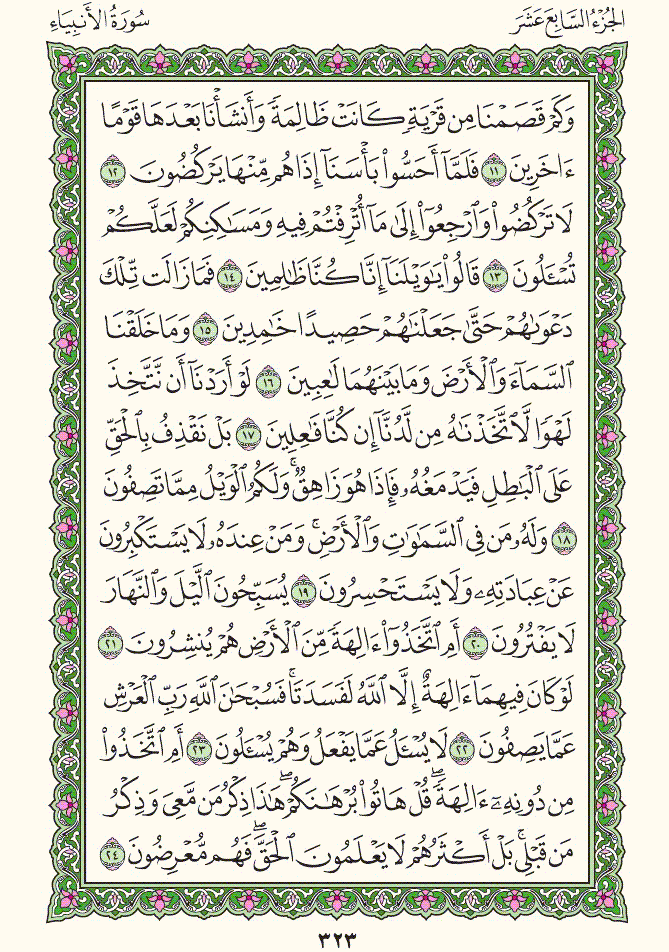 الجزء السابع عشر
سورة الأنبياء
وَكَمْ قَصَمْنَا مِن قَرْيَةٍ كَانَتْ ظَالِمَةً وَأَنشَأْنَا بَعْدَهَا قَوْمًا
ءَاخَرِينَ ١١ فَلَمَّآ أَحَسُّوا۟ بَأْسَنَآ إِذَا هُم مِّنْهَا يَرْكُضُونَ ١٢
لَا تَرْكُضُوا۟ وَٱرْجِعُوٓا۟ إِلَىٰ مَآ أُتْرِفْتُمْ فِيهِ وَمَسَٰكِنِكُمْ لَعَلَّكُمْ
تُسْـَٔلُونَ ١٣ قَالُوا۟ يَٰوَيْلَنَآ إِنَّا كُنَّا ظَٰلِمِينَ ١٤ فَمَا زَالَت تِّلْكَ
دَعْوَىٰهُمْ حَتَّىٰ جَعَلْنَٰهُمْ حَصِيدًا خَٰمِدِينَ ١٥ وَمَا خَلَقْنَا
ٱلسَّمَآءَ وَٱلْأَرْضَ وَمَا بَيْنَهُمَا لَٰعِبِينَ ١٦ لَوْ أَرَدْنَآ أَن نَّتَّخِذَ
لَهْوًا لَّٱتَّخَذْنَٰهُ مِن لَّدُنَّآ إِن كُنَّا فَٰعِلِينَ ١٧ بَلْ نَقْذِفُ بِٱلْحَقِّ
عَلَى ٱلْبَٰطِلِ فَيَدْمَغُهُۥ فَإِذَا هُوَ زَاهِقٌ ۚ وَلَكُمُ ٱلْوَيْلُ مِمَّا تَصِفُونَ
١٨ وَلَهُۥ مَن فِى ٱلسَّمَٰوَٰتِ وَٱلْأَرْضِ ۚ وَمَنْ عِندَهُۥ لَا يَسْتَكْبِرُونَ
عَنْ عِبَادَتِهِۦ وَلَا يَسْتَحْسِرُونَ ١٩ يُسَبِّحُونَ ٱلَّيْلَ وَٱلنَّهَارَ
لَا يَفْتُرُونَ ٢٠ أَمِ ٱتَّخَذُوٓا۟ ءَالِهَةً مِّنَ ٱلْأَرْضِ هُمْ يُنشِرُونَ ٢١
لَوْ كَانَ فِيهِمَآ ءَالِهَةٌ إِلَّا ٱللَّهُ لَفَسَدَتَا ۚ فَسُبْحَٰنَ ٱللَّهِ رَبِّ ٱلْعَرْشِ
عَمَّا يَصِفُونَ ٢٢ لَا يُسْـَٔلُ عَمَّا يَفْعَلُ وَهُمْ يُسْـَٔلُونَ ٢٣ أَمِ ٱتَّخَذُوا۟
مِن دُونِهِۦٓ ءَالِهَةً ۖ قُلْ هَاتُوا۟ بُرْهَٰنَكُمْ ۖ هَٰذَا ذِكْرُ مَن مَّعِىَ وَذِكْرُ
مَن قَبْلِى ۗ بَلْ أَكْثَرُهُمْ لَا يَعْلَمُونَ ٱلْحَقَّ ۖ فَهُم مُّعْرِضُونَ ٢٤
٣٢٣